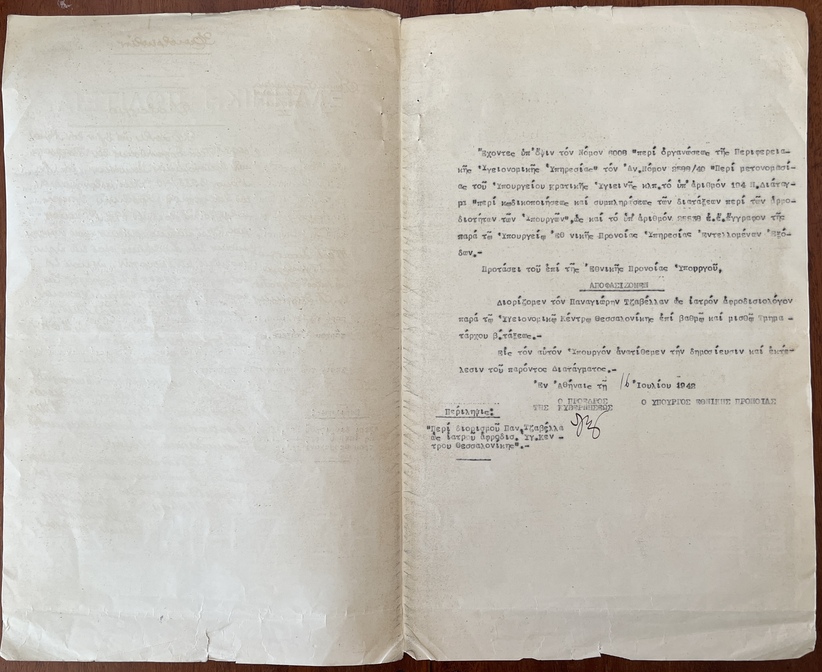 Ἔχοντες ὑπ'ὄψιν τόν Νόμον 6008 "περί ὀργανώσεως τῆς Περιφερεια-
κῆς Ὑγειονομικῆς Ὑπηρεσίας" τόν Ἀν.Νόμον /40 "Περί μετονομασί-
ας τοῦ Ὑπουργείου κρατικῆς Ὑγιεινῆς κλπ.τό ὑπ'ἀριθμόν 194 Π.Διάταγ-
μα "περί κωδικοποιήσεως καί συμπληρώσεως τῶν διατάξεων περί τῶν ἁρμο-
διοτήτων τῶν Ὑπουργῶν",ὡς καί τό ὑπ'ἀριθμόν ἐ.ἔ.ἔγγραφον τῆς
παρά τῷ Ὑπουργείῳ Ἐθνικῆς Προνοίας Ὑπηρεσίας Ἐντελλομένων Ἐξό-
δων.-
Προτάσει τοῦ ἐπί τῆς Ἐθνικῆς Προνοίας Ὑπουργοῦ,
ΑΠΟΦΑΣΙΖΟΜΕΝ
Διορίζομεν τόν Παναγιώτην Τζαβέλλαν ὡς ἰατρόν ἀφροδισιολόγον
παρά τῷ Ὑγειονομικῷ Κέντρῳ Θεσσαλονίκης ἐπί βαθμῷ καί μισθῷ Τμημα -
τάρχου β.τάξεως.-
Εἰς τόν αὐτόν Ὑπουργόν ἀνατίθεμεν τήν δημοσίευσιν καί ἐκτέ-
λεσιν τοῦ παρόντος Διατάγματος.-
Ἐν Ἀθήναις τῇ 16 Ἰουλίου 1942
Ο ΠΡΟΕΔΡΟΣ
ΤΗΣ ΚΥΒΕΡΝΗΣΕΩΣ
Ο ΥΠΟΥΡΓΟΣ ΕΘΝΙΚΗΣ ΠΡΟΝΟΙΑΣ
Περίληψις:
"Περί διορισμοῦ Παν.Τζαβέλλα
ὡς ἰατροῦ ἀφροδισ. Ὑγ.Κέν -
τρου Θεσσαλονίκης".-